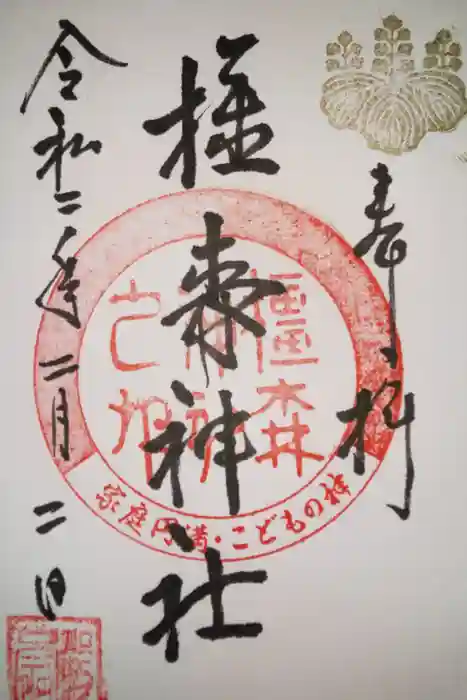 奉拝
橿森神社
令和二年二月二日
橿森
神社
之印
家庭円満・こどもの神